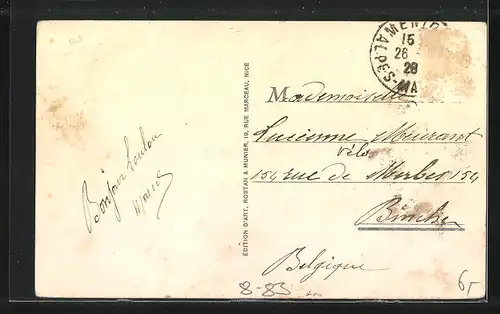 Bonjour Loulou
ÉDITION D'ART, ROSTAN & MUNIER, 10, RUE MARCEAU, NICE
MENTO
15
26
28
ALPES
MA
Mademoiselle
Lucienne Meurant
Vélos
154 rue de Merbes 154
Binche
Belgique
8-83